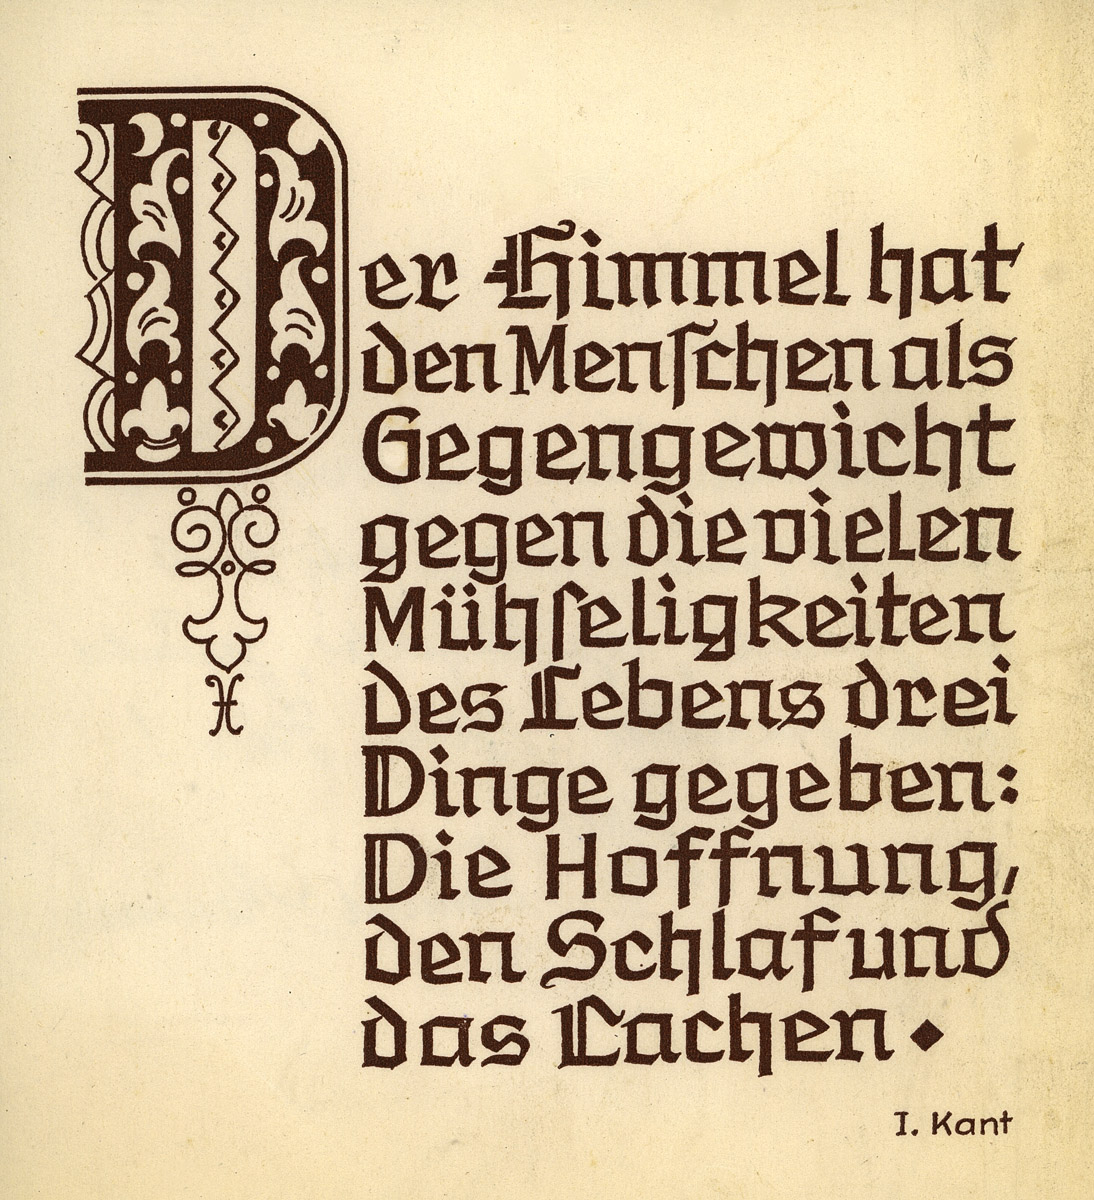 Der Himmel hat
den Menſchen als
Gegengewicht
gegen die vielen
Mühſeligkeiten
des Lebens drei
Dinge gegeben:
Die Hoffnung,
den Schlaf und
das Lachen ◆
I. Kant